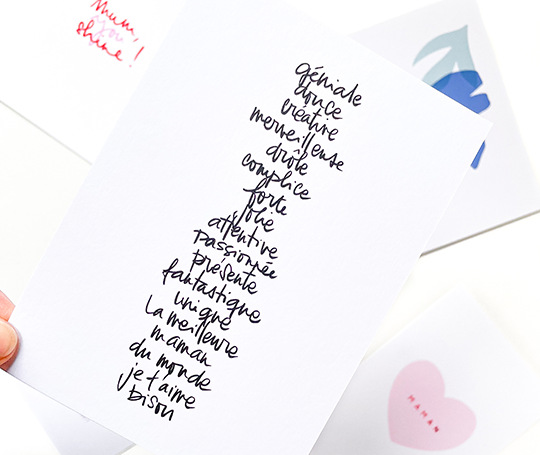 Mum,
you
shine!
géniale
douce
créative
merveilleuse
drôle
complice
forte
jolie
attentive
passionnée
présente
fantastique
unique
la meilleure
maman
du monde
je t'aime
bisou
MAMAN